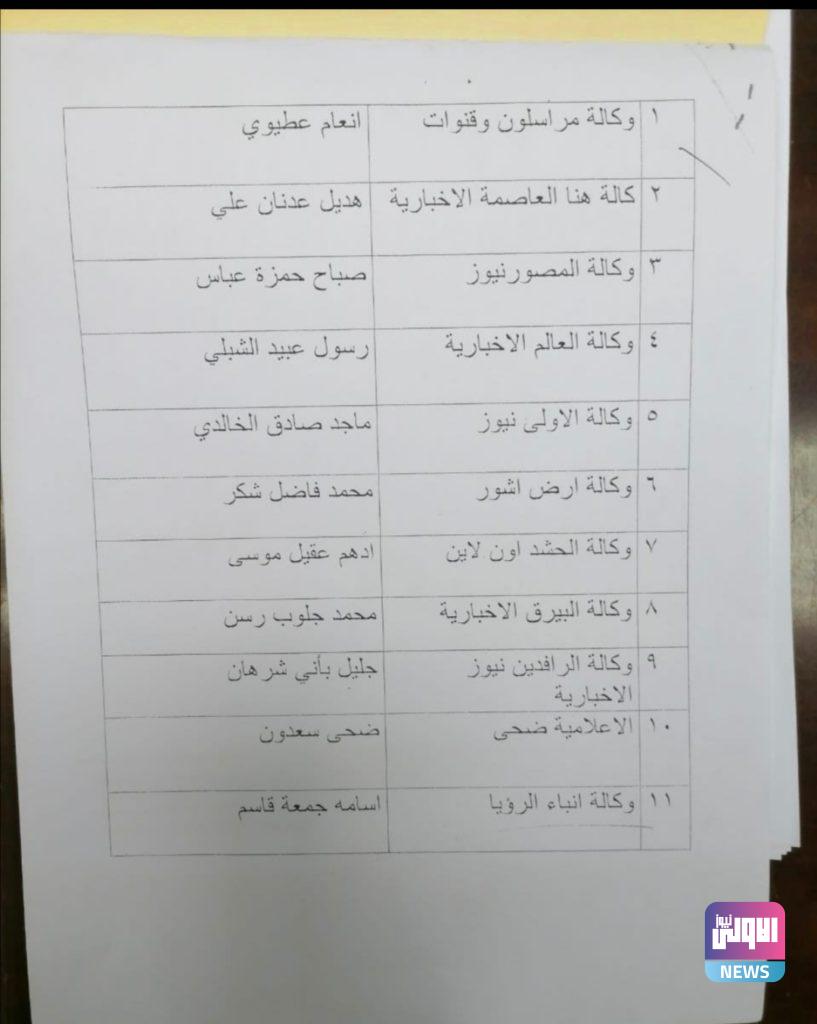 ١ وكالة مراسلون وقنوات انعام عطيوي
٢ كالة هنا العاصمة الاخبارية هديل عدنان علي
٣ وكالة المصورنيوز صباح حمزة عباس
٤ وكالة العالم الاخبارية رسول عبيد الشبلي
٥ وكالة الاولى نيوز ماجد صادق الخالدي
٦ وكالة ارض اشور محمد فاضل شكر
٧ وكالة الحشد اون لاين ادهم عقيل موسى
٨ وكالة البيرق الاخبارية محمد جلوب رسن
٩ وكالة الرافدين نيوز جليل بأني شرهان
الاخبارية
١٠ الاعلامية ضحى ضحى سعدون
١١ وكالة انباء الرؤيا اسامه جمعة قاسم
الاولى نيوز
NEWS